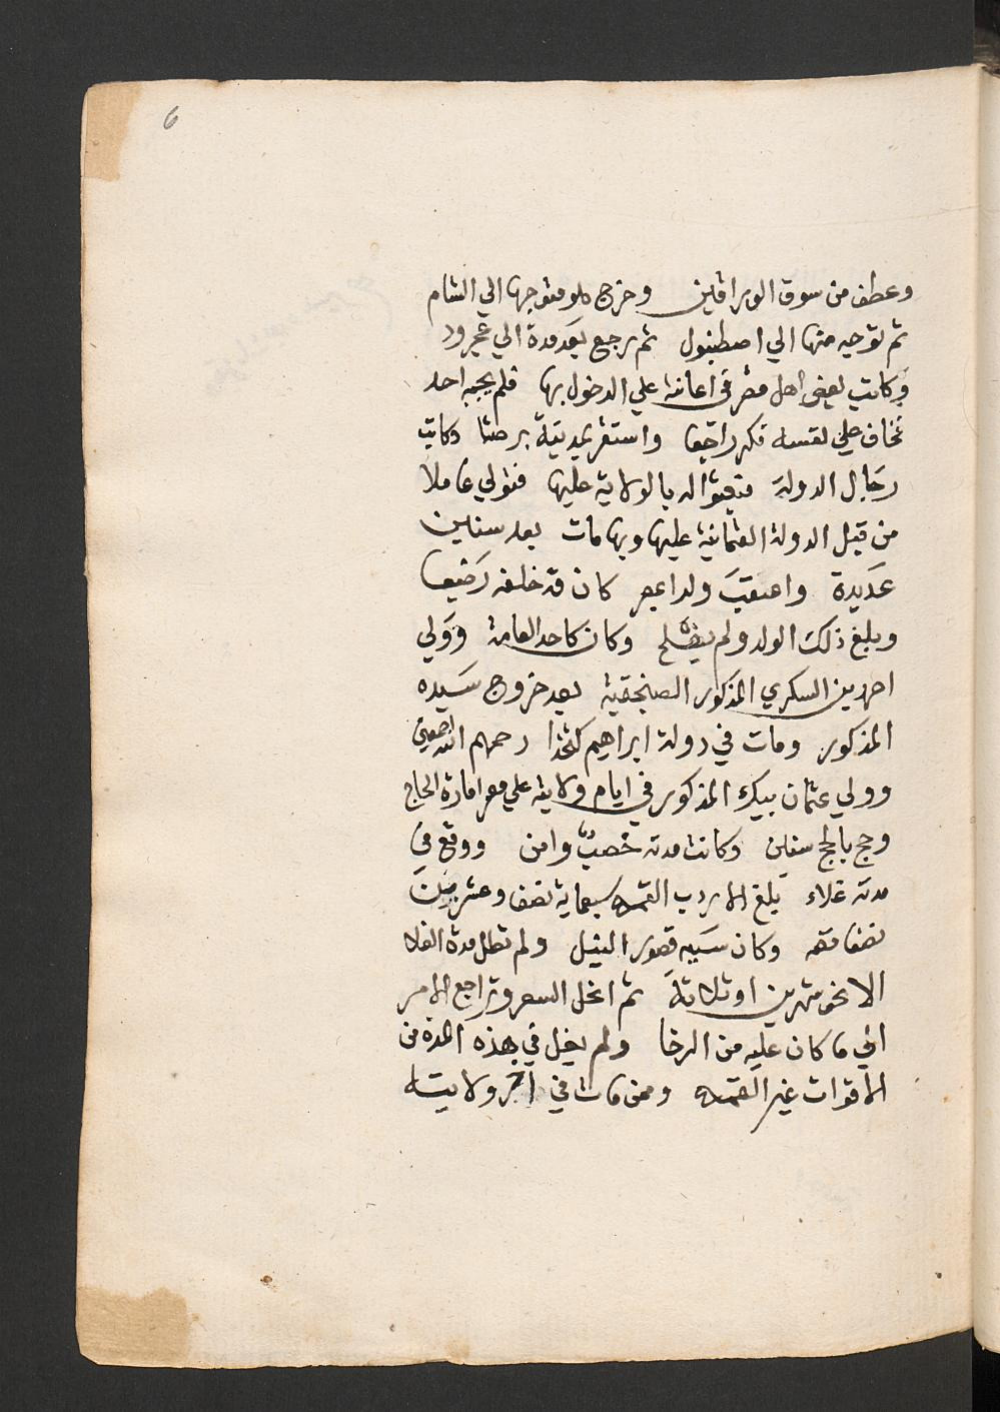 6
وعطف من سوق الوراقين وخرج متوجها الي الشام
ثم توجه منها الي اصطنبول ثم رجع بعد مدة الي عجرود
وكاتب بعض اهل مصر في اعانته علي الدخول بها فلم يجبه احد
فخاف علي نفسه فكر راجعا واستقر بمدينة برصا وكاتب
رجال الدولة فبعثوا له بالولاية عليها فتولي عاملا
من قبل الدولة العثمانية عليها وبها مات بعد سنين
عديدة واعقب ولدا بمصر كان قد خلفه رضيعا
وبلغ ذلك الولد ولم يفلح وكان كاحد العامة وولي
احمد بن السكري المذكور الصنجقية بعد خروج سيده
المذكور ومات في دولة ابراهيم كتخدا رحمهم الله اجمعين
وولي عثمان بيك المذكور في ايام ولايته علي مصر امارة الحاج
وحج بالحج سنين وكانت مدته خصب وامن ووقع في
مدته غلاء بلغ الاردب القمح سبعماية نصف وعشرين
نصفا فضه وكان سببه قصور النيل ولم تطل مدة الغلا
الا نحو شهرين او ثلاثة ثم انحل السعر وتراجع الامر
الي ما كان عليه من الرخا ولم يغل في هذه المدة من
الاقوات غير القمح وممن مات في اخر ولايته